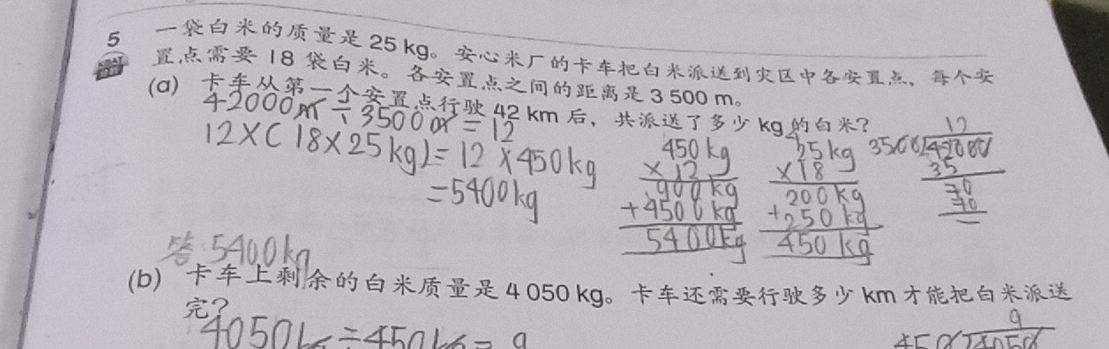 5 一袋白米的质量是 25 kg。安心米厂的卡车把白米派送到灾区中各安置点，每个安
置点需要 18 袋白米。各安置点之间的距离是 3 500 m。
(a) 卡车从第一个安置点行驶 42 km 后，共派送了多少 kg 的白米？
42000m ÷ 3500m = 12
12×(18×25kg) = 12×450kg
=5400kg
450kg
×12
900kg
+4500kg
5400kg
25kg
×18
200kg
+250kg
450kg
12
3500 42000
35
70
70
答:5400kg
(b) 卡车上剩余的白米质量是 4 050 kg。卡车还需要行驶多少 km 才能把白米派送
完？
4050kg÷450kg= 9
9
450 4050